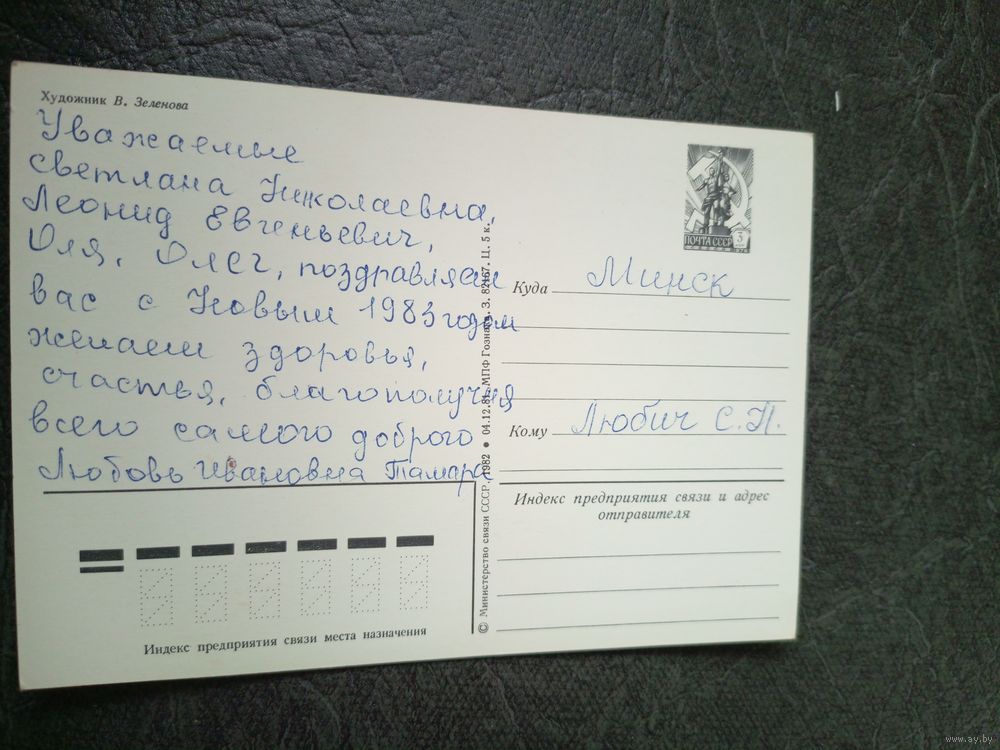 Художник В. Зеленова
Уважаемые
светлана Николаевна,
Леонид Евгеньевич,
Оля, Олег, поздравляем
вас с Новым 1983 годом
желаем здоровья,
счастья, благополучия
всего самого доброго
Любовь Ивановна Тамара
ПОЧТА СССР 3
Куда Минск
Кому Любич С.Н.
Индекс предприятия связи и адрес
отправителя
© Министерство связи СССР. 1982 • 04.12.81. МПФ Гознака. З. 82167. Ц. 5 к.
Индекс предприятия связи места назначения
www.ay.by